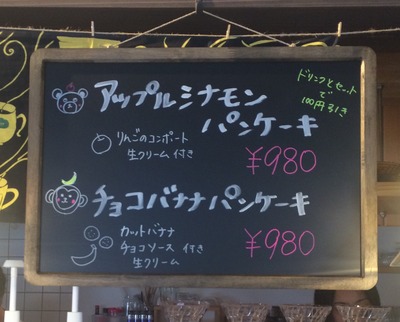 アップルシナモン
パンケーキ
ドリンクとセット
で
100円引き
りんごのコンポート
生クリーム 付き
¥980
チョコバナナパンケーキ
カットバナナ
チョコソース 付き
生クリーム
¥980